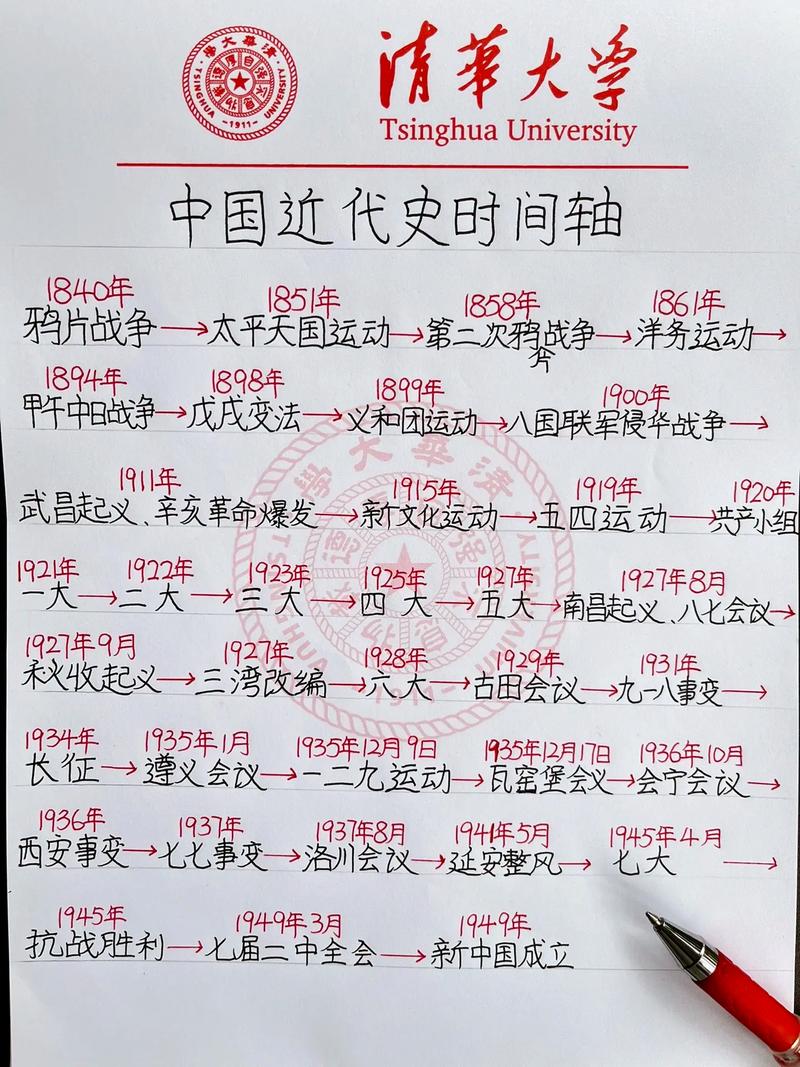 清華大學
TSINGHUA UNIVERSITY
自强不息
厚德载物
-1911-
清華大学
Tsinghua University
中国近代史时间轴
1840年 1851年 1858年 1861年
鸦片战争→太平天国运动→第二次鸦片战争→洋务运动→
1894年 1898年 1899年 1900年
甲午中日战争→戊戌变法→义和团运动→八国联军侵华战争→
1911年 1915年 1919年 1920年
武昌起义、辛亥革命爆发→新文化运动→五四运动→共产小组
1921年 1922年 1923年 1925年 1927年 1927年8月
一大→二大→三大→四大→五大→南昌起义、八七会议→
1927年9月 1927年 1928年 1929年 1931年
秋收起义→三湾改编→六大→古田会议→九一八事变→
1934年 1935年1月 1935年12月9日 1935年12月17日 1936年10月
长征→遵义会议→一二九运动→瓦窑堡会议→会宁会议→
1936年 1937年 1937年8月 1941年5月 1945年4月
西安事变→七七事变→洛川会议→延安整风→七大→
1945年 1949年3月 1949年
抗战胜利→七届二中全会→新中国成立